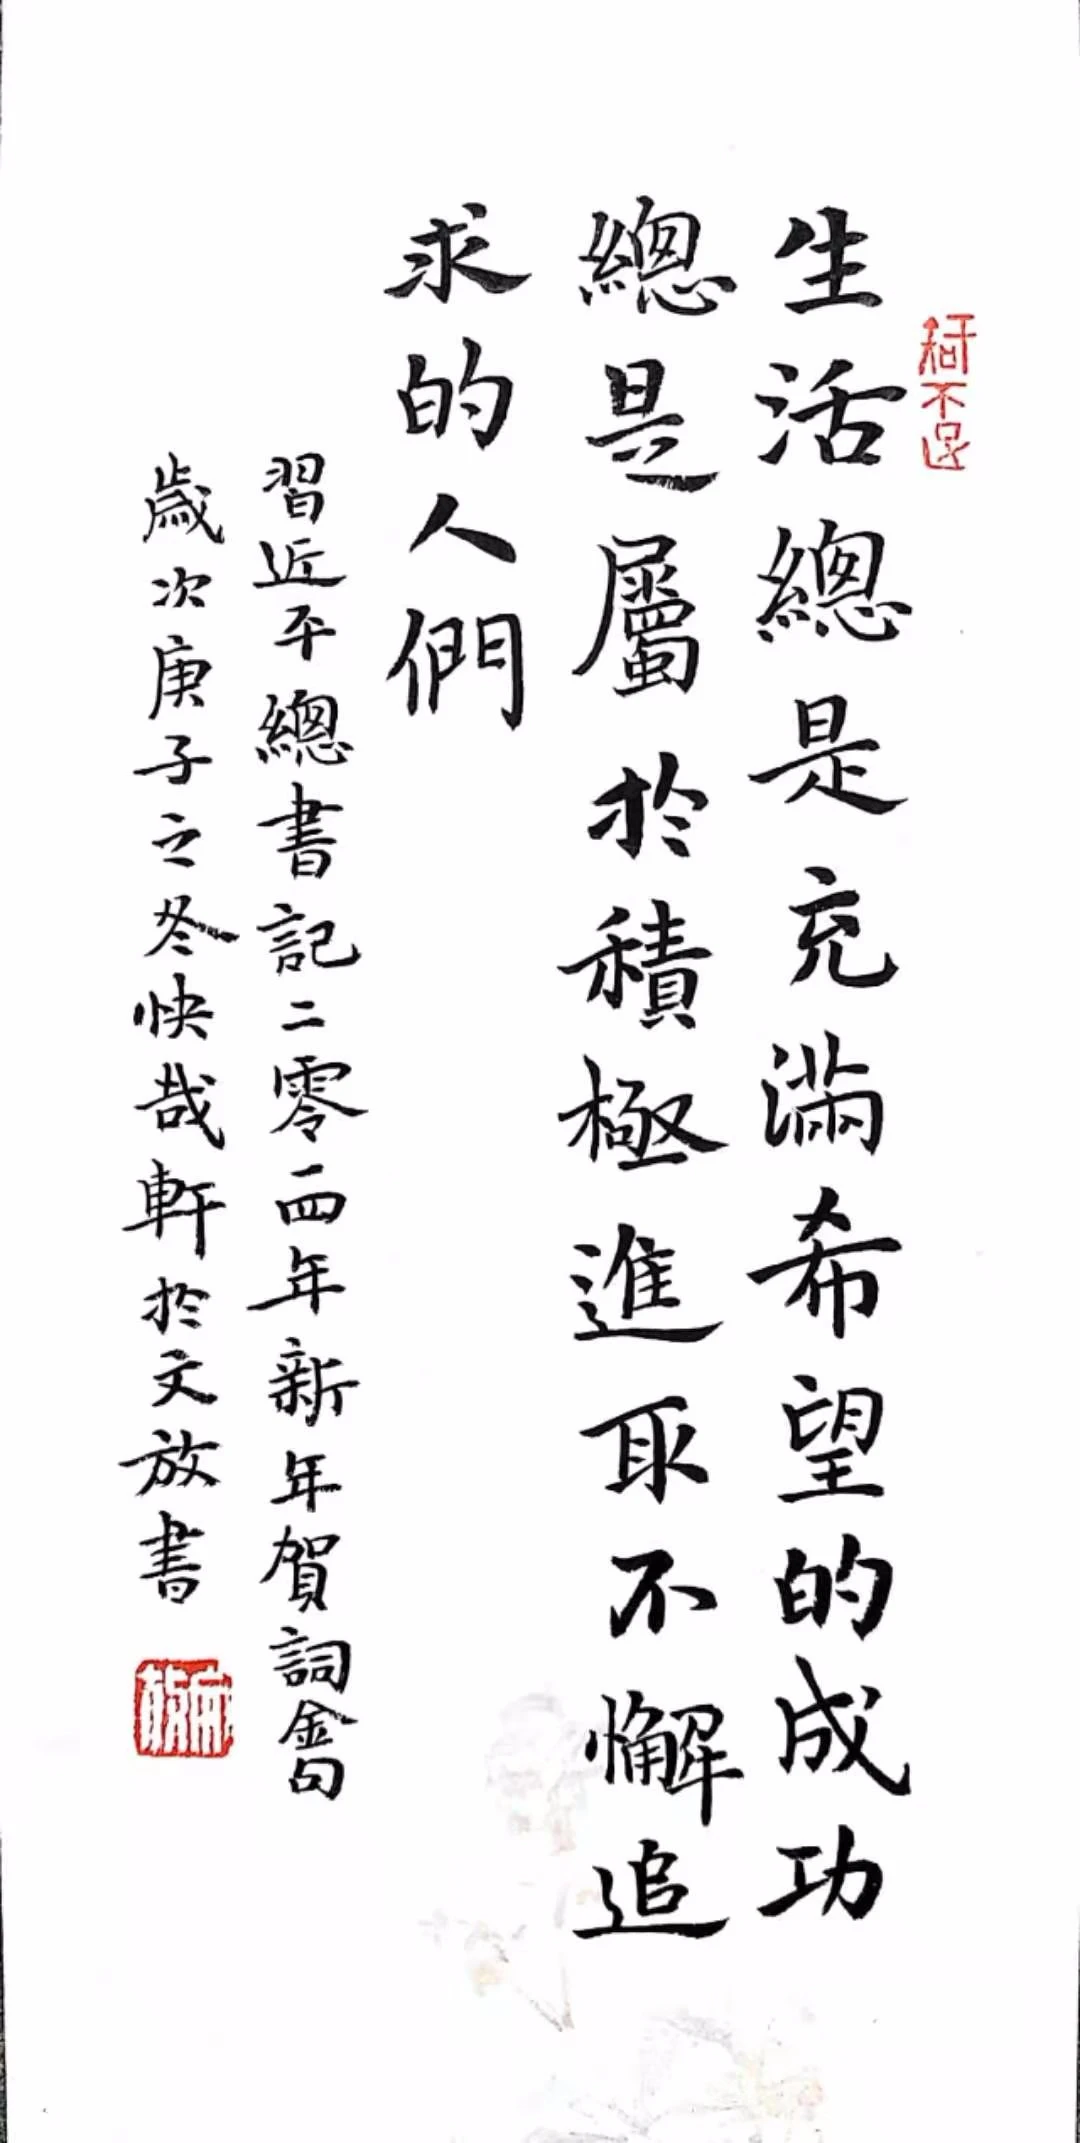 生活總是充滿希望的成功
總是屬於積極進取不懈追
求的人們
習近平總書記二零一四年新年賀詞金句
歲次庚子之冬快哉軒於文放書